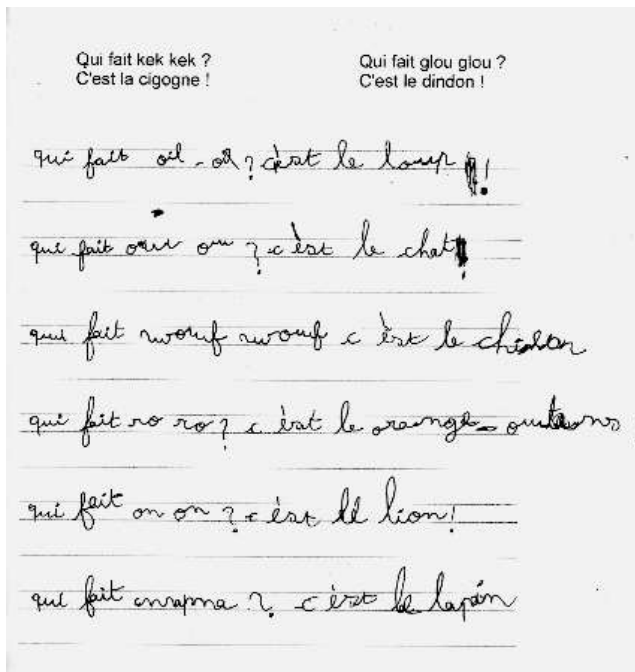 Qui fait kek kek ?
C'est la cigogne !
Qui fait glou glou ?
C'est le dindon !
qui fait oil - oil ? c'èst le loup !
qui fait ouu ou ? c'èst le chat !
qui fait wouf wouf c'èst le chien
qui fait ro ro ? c'èst le orange-outans
qui fait on on ? c'èst le lion !
qui fait ? c'èst le lapin